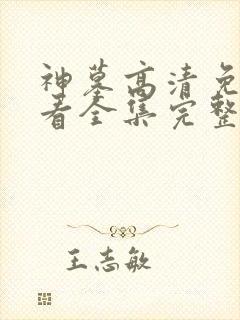 神墓高清免
看全集完整
王志敏